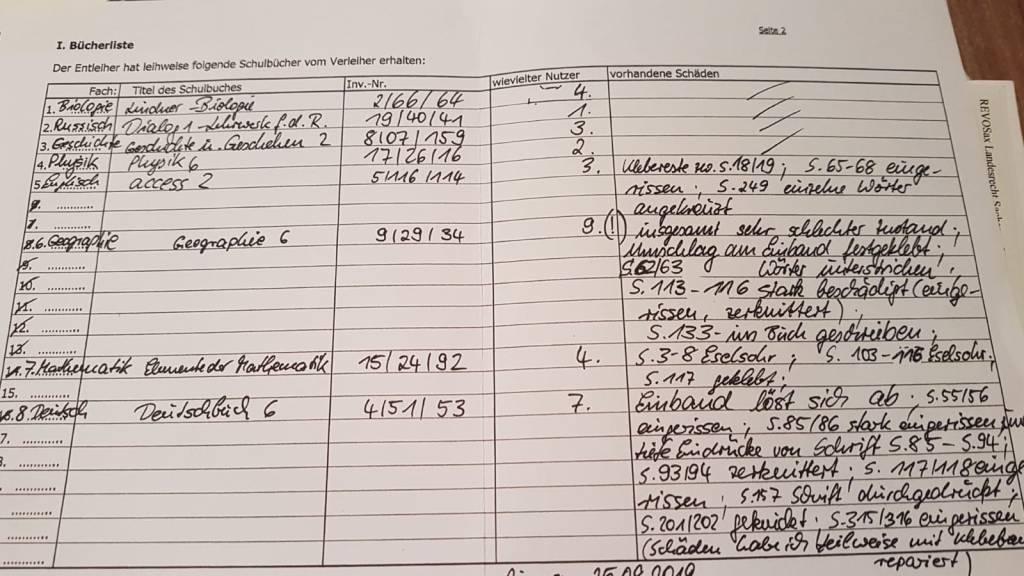 Seite 2
I. Bücherliste
Der Entleiher hat leihweise folgende Schulbücher vom Verleiher erhalten:
Fach: Titel des Schulbuches Inv.-Nr. wievielter Nutzer vorhandene Schäden
1. Biologie Lindner Biologie 2/66/64 4.
2. Russisch Dialog 1 - Lehrwerk f. d. R. 19/40/41 1.
3. Geschichte Geschichte u. Geschehen 2 8/07/159 3.
4. Physik Physik 6 17/26/16 2.
5. Englisch access 2 5/116/114 3. Klebereste zw. S. 18/19; S. 65-68 einge-
6. ........... rissen; S. 249 einzelne Wörter
angekreuzt
7. ...........
8. 6. Geographie Geographie 6 9/29/34 9. (!) insgesamt sehr schlechter Zustand;
Umschlag am Einband festgeklebt;
9. ........... S. 62/63 Wörter unterstrichen;
10. ........... S. 113-116 stark beschädigt (einge-
11. ........... rissen, zerknittert);
12. ........... S. 133- ins Buch geschrieben;
13. ...........
14. 7. Mathematik Elemente der Mathematik 15/24/92 4. S. 3-8 Eselsohr; S. 103-116 Eselsohr;
S. 117 geklebt;
15. ...........
16. 8. Deutsch Deutschbuch 6 4/51/53 7. Einband löst sich ab; S. 55/56
eingerissen; S. 85/86 stark eingerissen
7. ........... tiefe Eindrücke von Schrift S. 85 - S. 94;
S. 93/94 zerknittert; S. 117/118 einge
........... rissen; S. 157 Schrift durchgedrückt;
........... S. 201/202 geknickt; S. 315/316 eingerissen
........... (Schäden habe ich teilweise mit Kleben
........... repariert)
25.09.2019
REVOSax Landesrecht